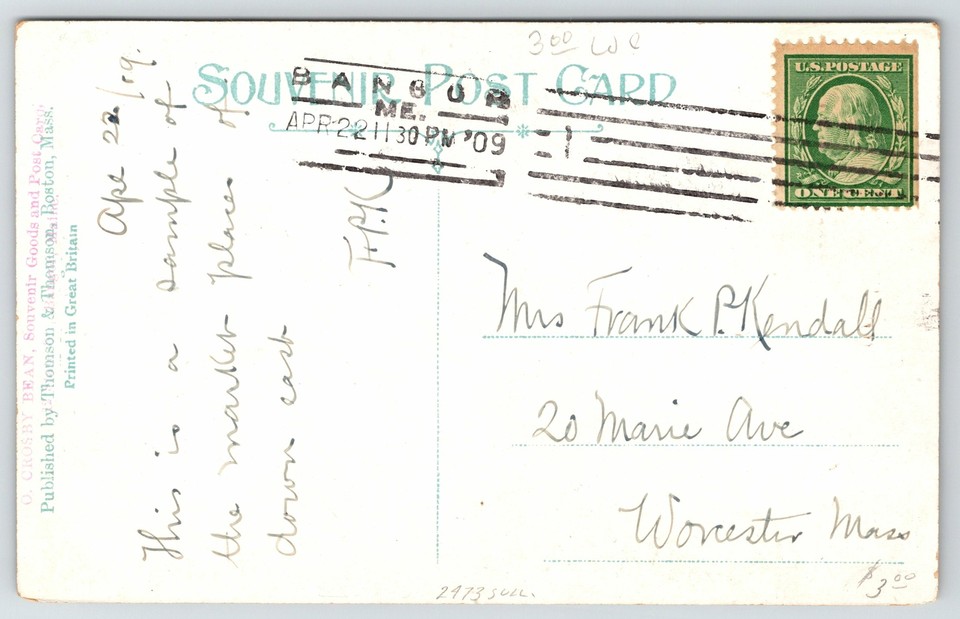 3 00 WC
SOUVENIR POST CARD
BANGOR
ME.
APR 22 11 30 PM '09
1
U.S. POSTAGE
ONE CENT
Apr 22/09.
This is a sample of
the market places of
down east
F.P.K
Mrs Frank P. Kendall
20 Marie Ave
Worcester Mass
O. CROSBY BEAN, Souvenir Goods and Post Cards
Published by Thomson & Thomson, Boston, Mass.
Printed in Great Britain
$3.00